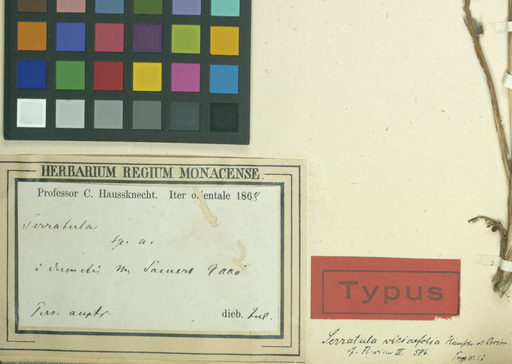 HERBARIUM REGIUM MONACENSE.
Professor C. Haussknecht. Iter orientale 1868
Serratula
sp. n.
in dumetis
Pers. austr. dieb. Jul.
Typus
Serratula viciaefolia Hausskn. et Boiss.